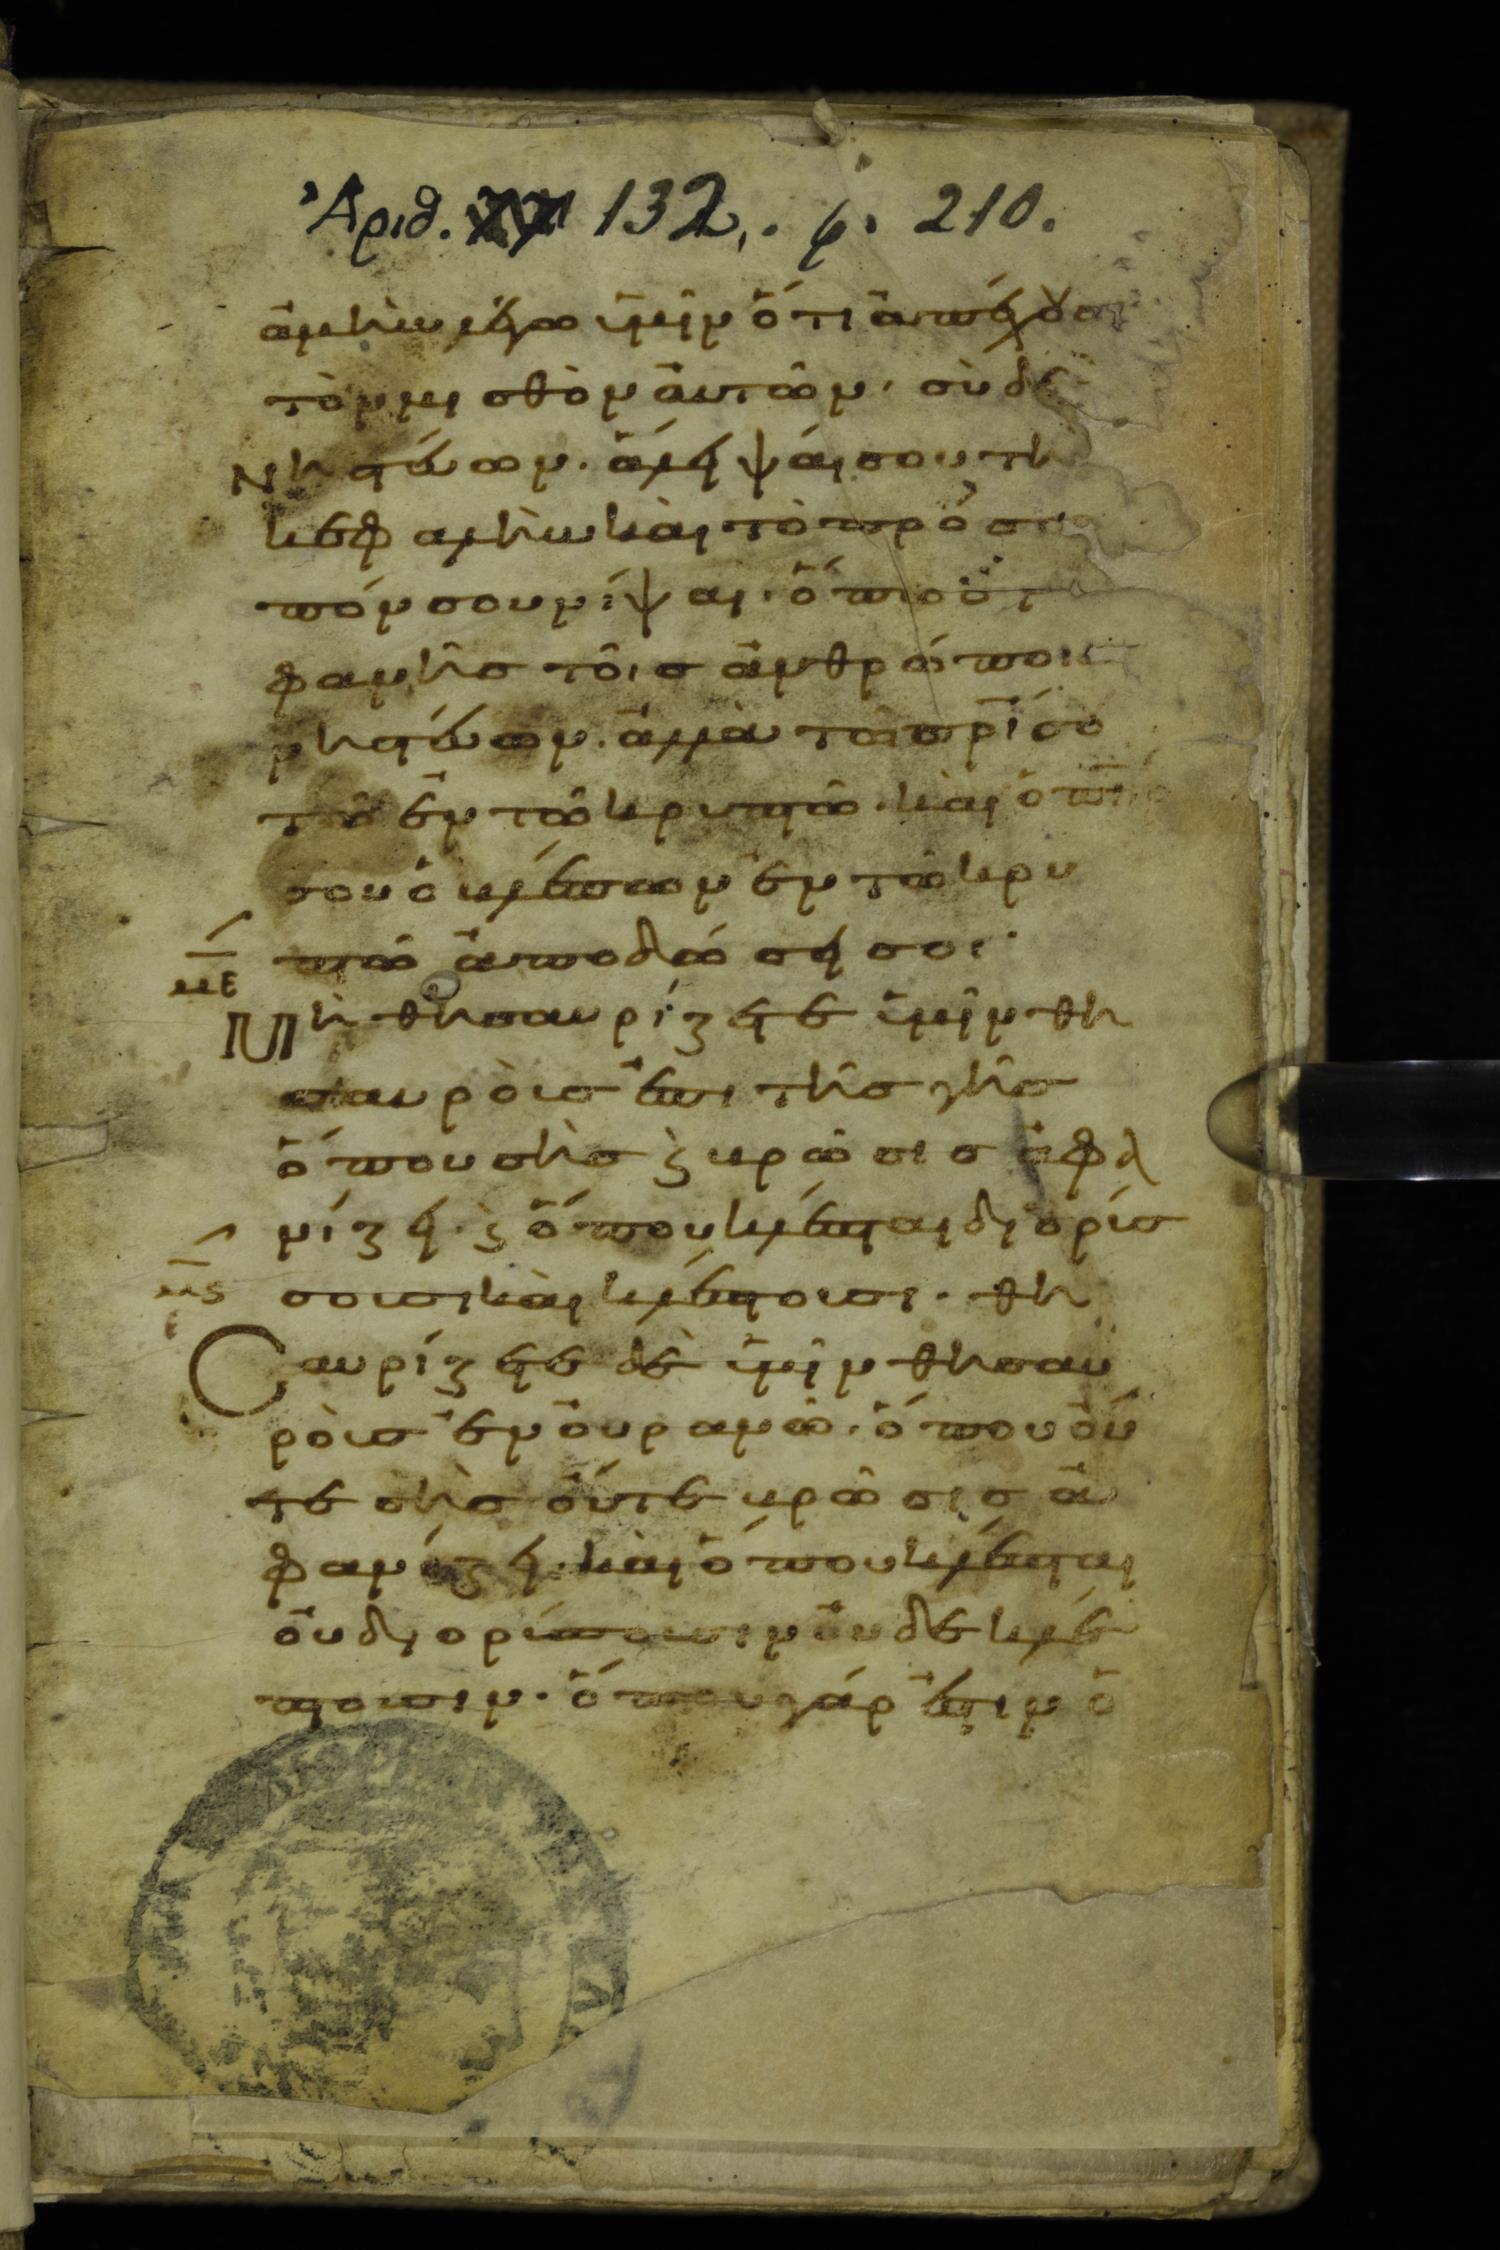 Ἀριθ. 132,. φ. 210.
ἀμὴν λέγω ὑμῖν ὅτι ἀπέχουσι
τὸν μισθὸν αὐτῶν. σὺ δὲ
νηστεύων. ἄλειψαί σου τὴ
κεφαλὴν καὶ τὸ πρόσω
πόν σου νίψαι. ὅπως
φανῆς τοῖς ἀνθρώποις
νηστεύων. ἀλλὰ τῶ πρί σου
τῶ ἐν τῶ κρυπτῶ. καὶ ὁ πηρ
σου ὁ βλέπων ἐν τῶ κρυ
πτῶ ἀποδώσει σοι·
με
Μὴ θησαυρίζετε ὑμῖν θη
σαυροὺς ἐπι τῆς γῆς
ὅπου σὴς ϗ βρῶσις ἀφα
νίζει. ϗ ὅπου κλέπται διορύσ
μς
σουσι καὶ κλέπτουσι. θη
Σαυρίζετε δὲ ὑμῖν θησαυ
ροὺς ἐν οὐρανῶ. ὅπου οὔ
τε σὴς οὔτε βρῶσις ἀ
φανίζει. καὶ ὅπου κλέπται
οὐ διορύσσουσιν οὐδὲ κλέ
πτουσιν. ὅπου γάρ ἐστιν ὁ